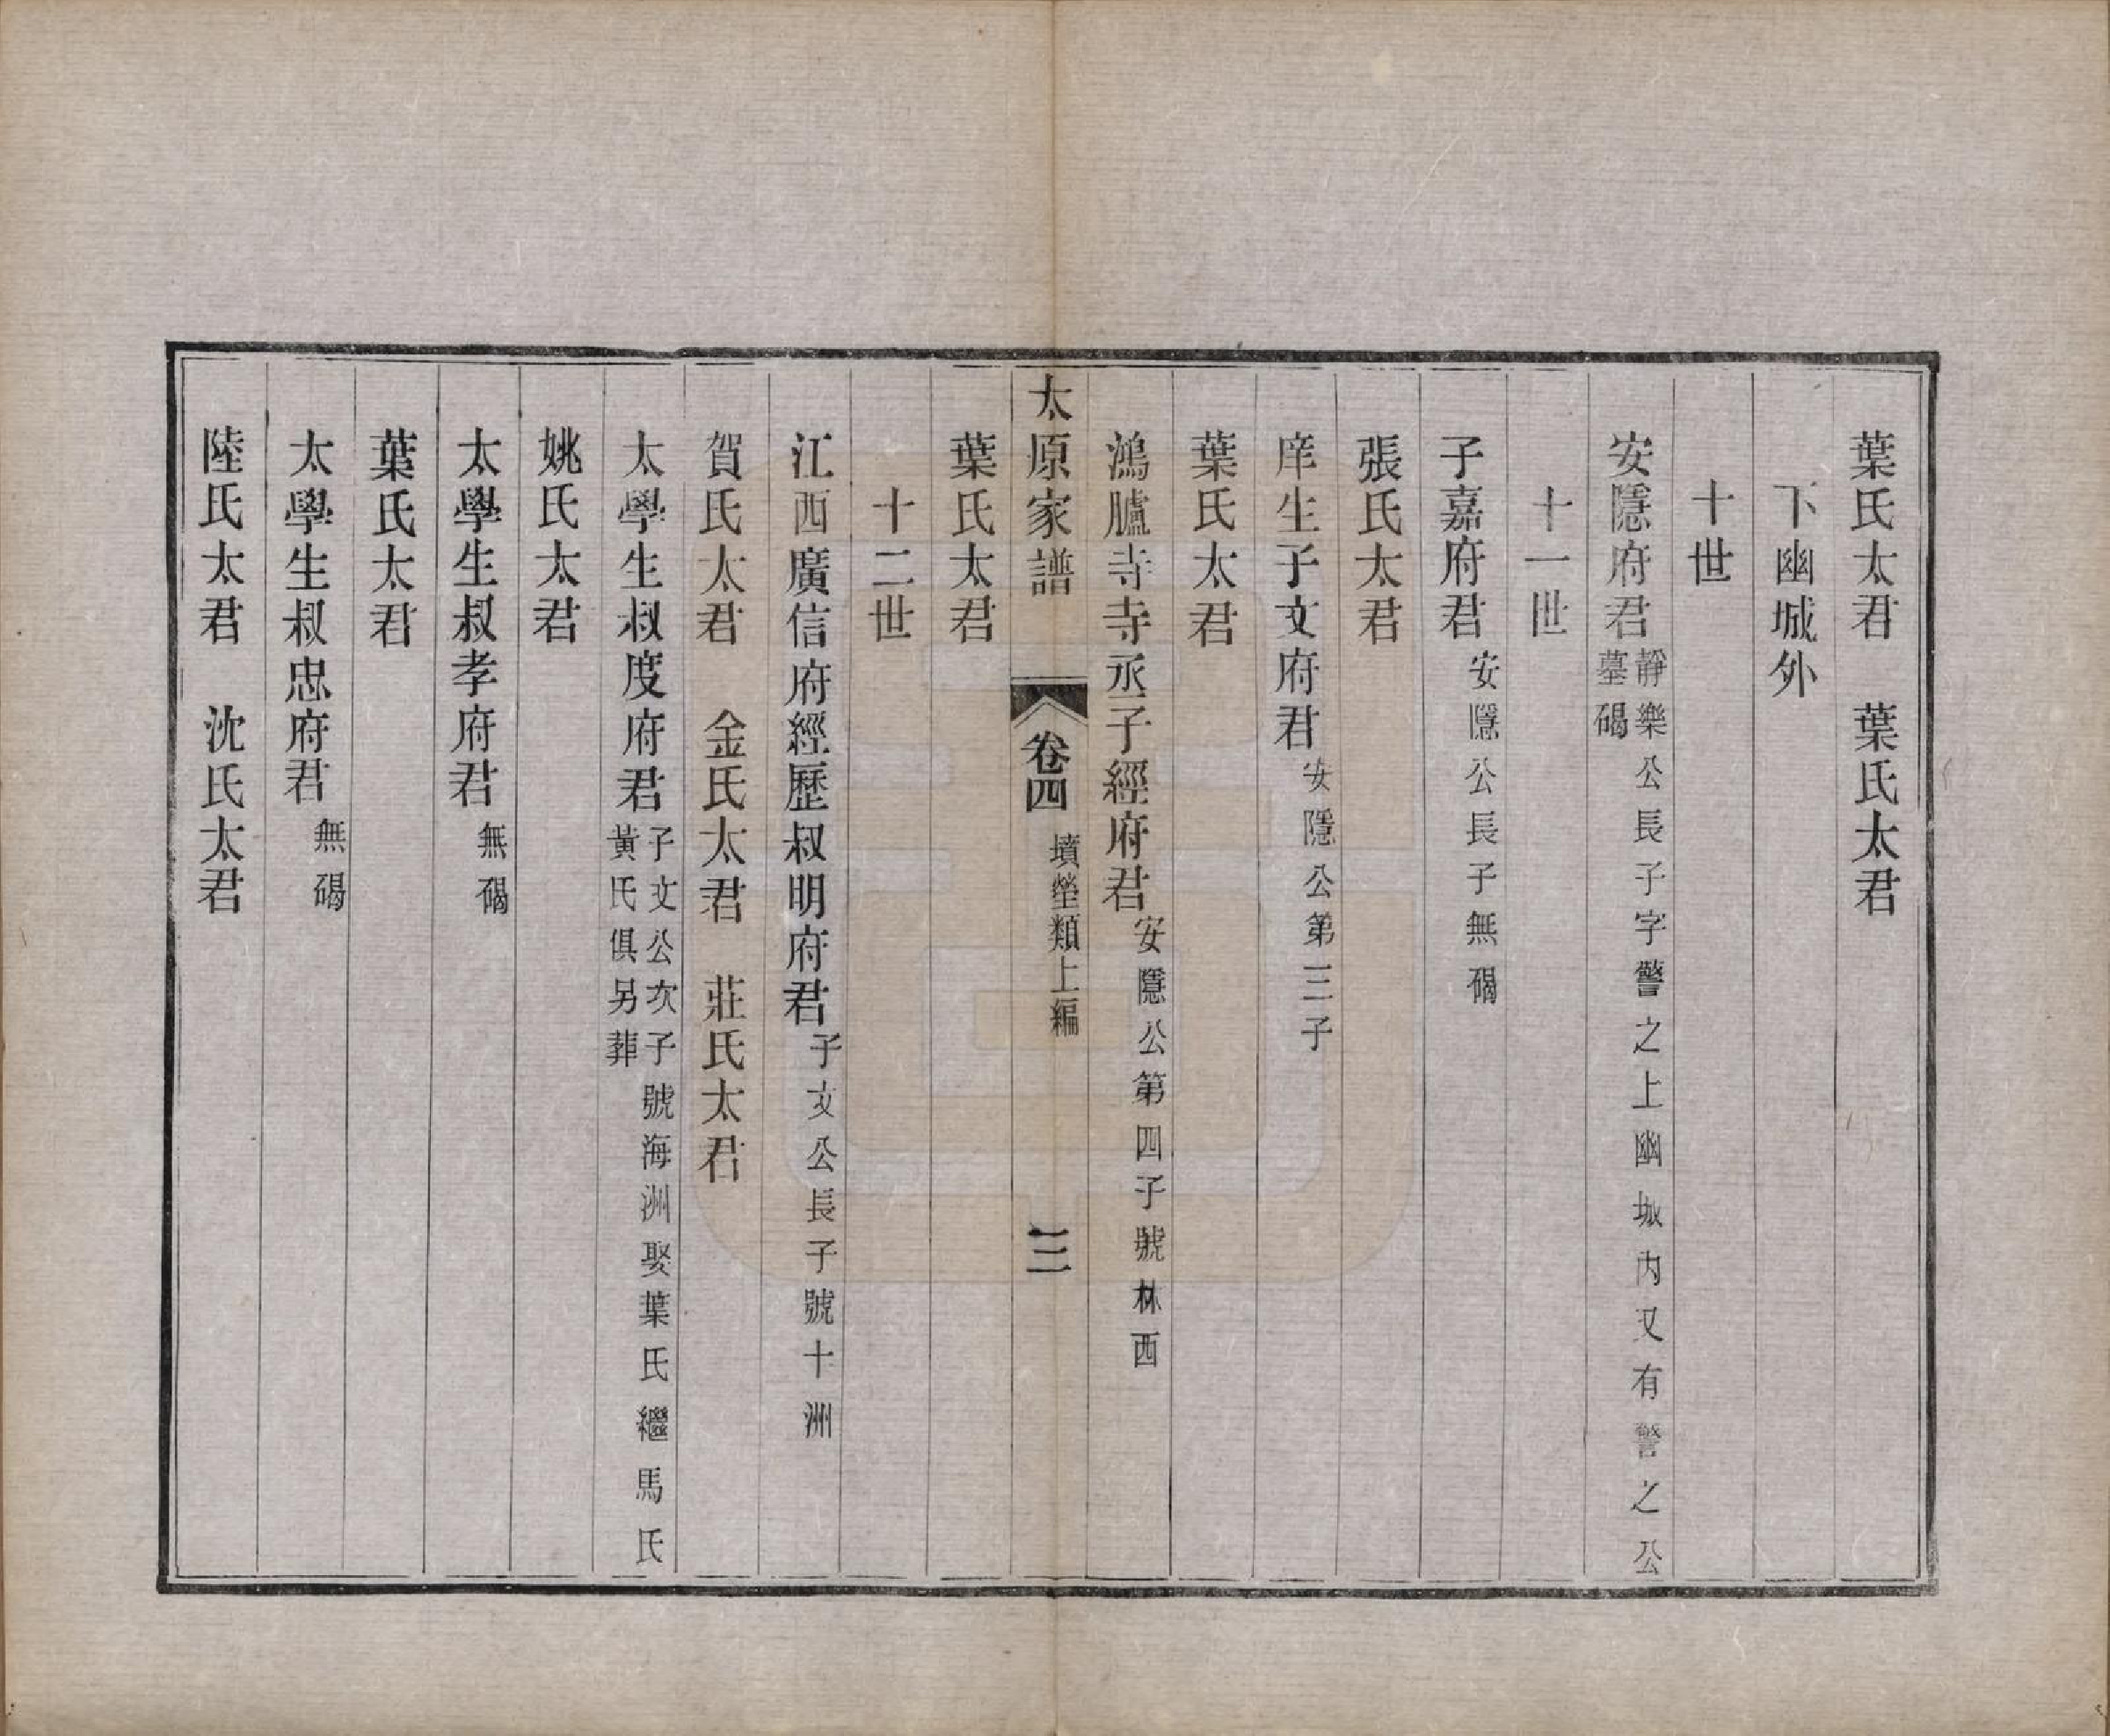 葉氏太君　葉氏太君
下幽城外
十世
安隱府君靜樂公長子字警之上幽城內又有警之公墓碣
十一世
子嘉府君安隱公長子無碣
張氏太君
庠生子文府君安隱公第三子
葉氏太君
鴻臚寺寺丞子經府君安隱公第四子號林西
太原家譜　卷四　墳塋類上編　三
葉氏太君
十二世
江西廣信府經歷叔明府君子文公長子號十洲
賀氏太君　金氏太君　莊氏太君
太學生叔度府君子文公次子號海洲娶葉氏繼馬氏黃氏俱另葬
姚氏太君
太學生叔孝府君無碣
葉氏太君
太學生叔忠府君無碣
陸氏太君　沈氏太君